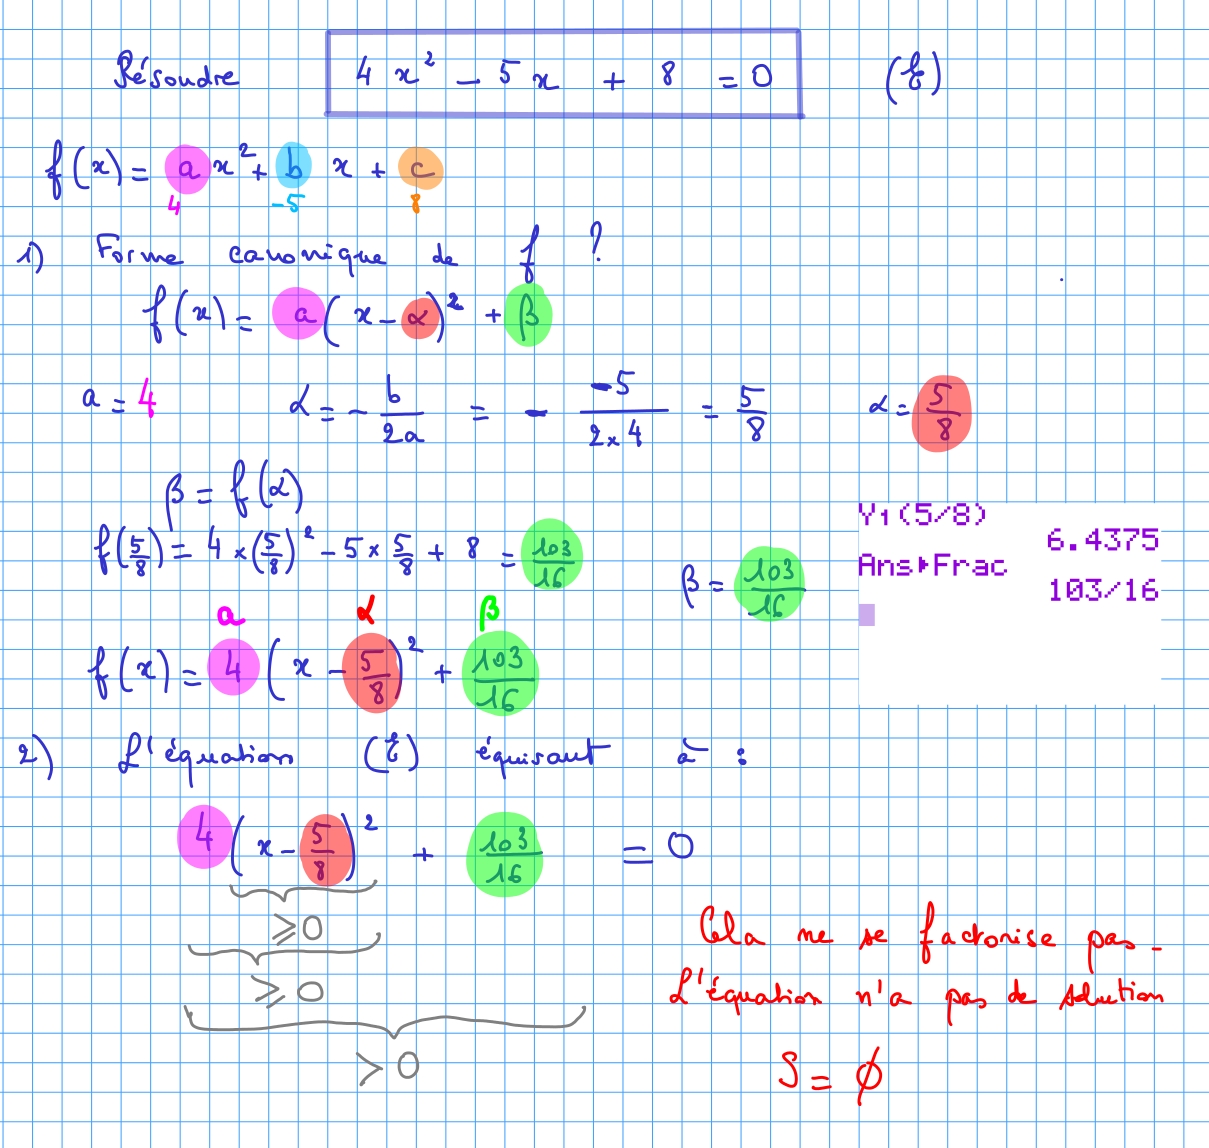 Résoudre 4x² - 5x + 8 = 0 (E)
f(x) = a x² + b x + c
4 -5 8
1) Forme canonique de f ?
f(x) = a(x - α)² + β
a = 4 α = - b/2a = - -5/2×4 = 5/8 α = 5/8
β = f(α)
f(5/8) = 4 × (5/8)² - 5 × 5/8 + 8 = 103/16 β = 103/16
Y1(5/8)
6.4375
Ans▸Frac
103/16
a α β
f(x) = 4 (x - 5/8)² + 103/16
2) L'équation (E) équivaut à :
4 (x - 5/8)² + 103/16 = 0
⩾ 0
⩾ 0
> 0
Cela ne se factorise pas.
L'équation n'a pas de solution
S = ∅